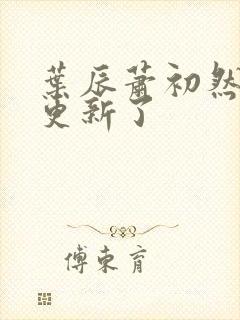 葉辰蕭初然
更新了
傅東育